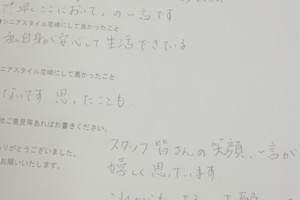 ここにおいて、の一言です
ニアスタイル尼崎にして良かったこと
私自身が安心して生活できている
ニアスタイル尼崎にして悪かったこと
ないです 思ったことも
ご意見等あればお書きください。
りがとうございました。
お願いいたします。
スタッフ皆さんの笑顔、一言が
嬉しく思っています